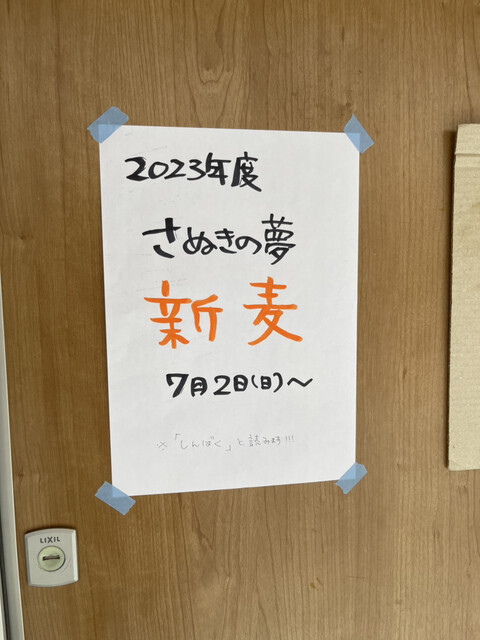 2023年度
さぬきの夢
新麦
7月2日(日)～
※「しんばく」と読みます!!!
LIXIL